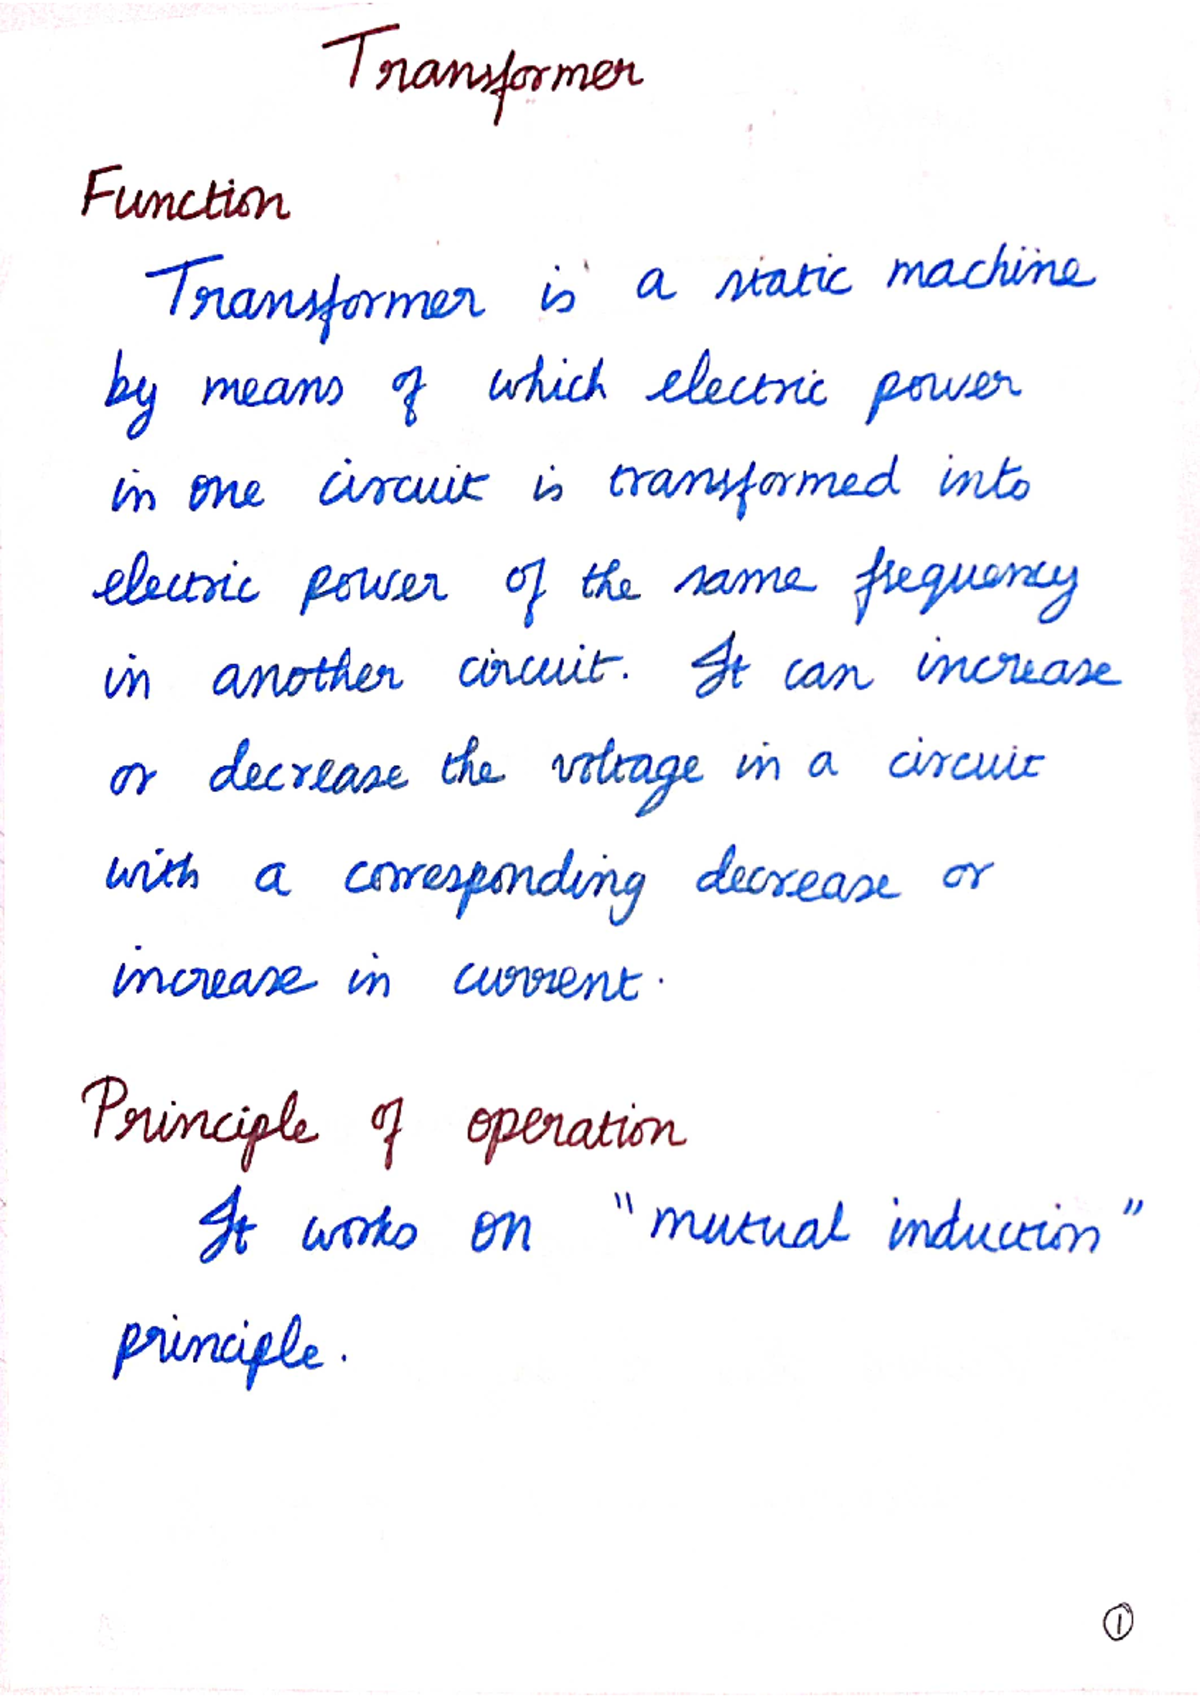 Transformer
Function
Transformer is a static machine
by means of which electric power
in one circuit is transformed into
electric power of the same frequency
in another circuit. It can increase
or decrease the voltage in a circuit
with a corresponding decrease or
increase in current.
Principle of operation
It works on "mutual induction"
principle.
1